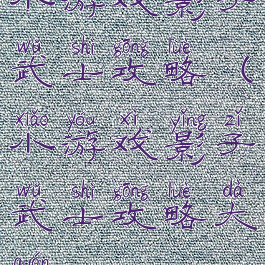 游戏影子
wǔ shì gōng lüè
武士攻略（
xiǎo yóu xì yǐng zi
小游戏影子
wǔ shì gōng lüè dà
武士攻略大